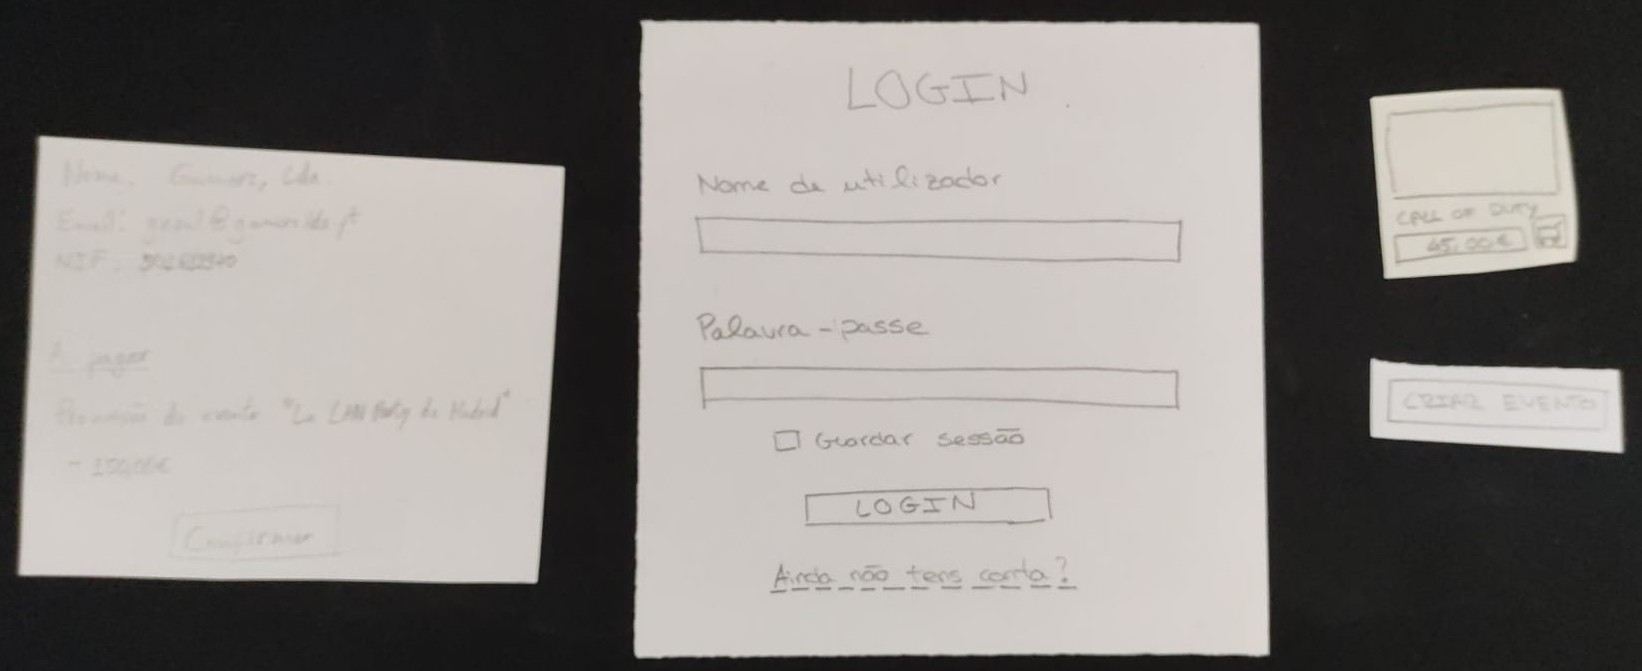 Nome, Gamers, Lda.
Email:
NIF:
A pagar
Promoção do evento "La LAN Party de Madrid"
- 150,00€
Confirmar
LOGIN
Nome de utilizador
Palavra-passe
Guardar sessão
LOGIN
Ainda não tens conta?
CALL OF DUTY
45,00€
CRIAR EVENTO